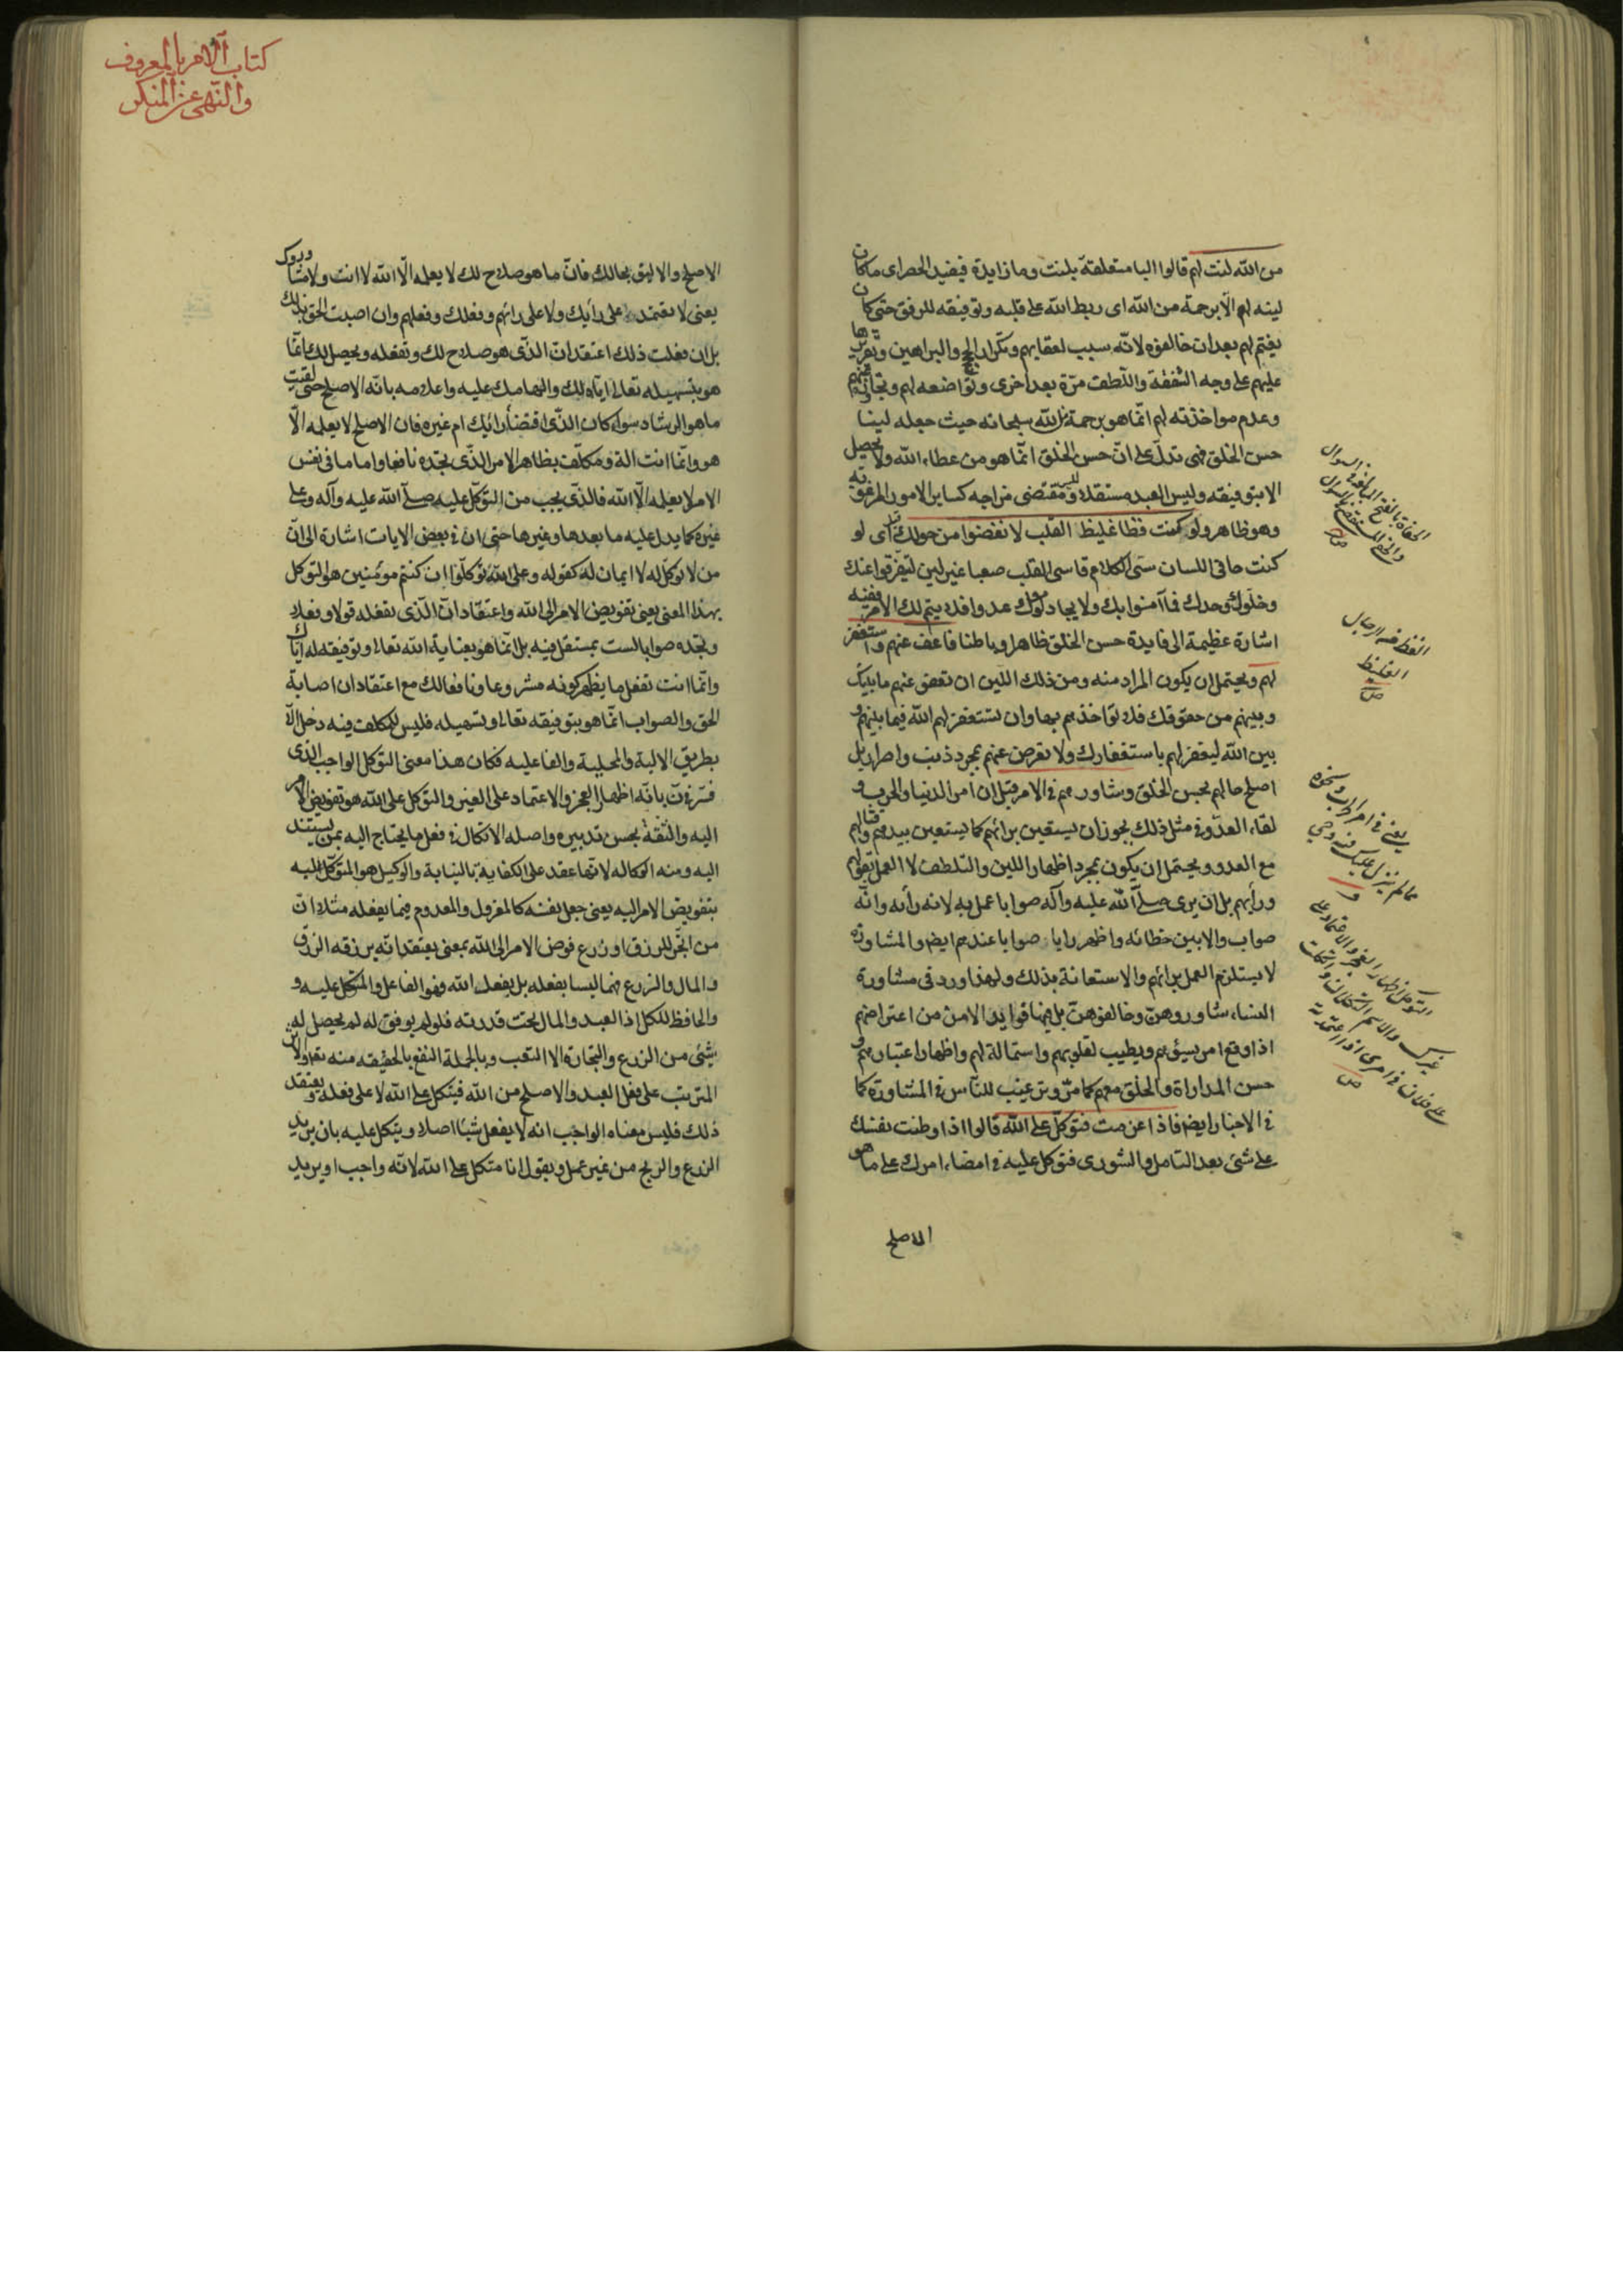 من الله لنت لهم قالوا البا متعلقة بلنت وما زايدة فيفيد الحصر اى ما كان
لينه لهم الا برحمة من الله اى ربط الله على قلبه وتوفيقه للرفق حتى كان
يغتم لهم بعد ان خالفوه لانه سبب لعقابهم وتكرار الحجج والبراهين وتقريرها
عليهم على وجه الشفقة واللطف مرّة بعد اخرى وتواضعه لهم وتجاوزه عنهم
وعدم مواخذته لهم انّما هو برحمة من الله سبحانه حيث جعله لينا
حسن الخلق فهى تدلّ على انّ حسن الخلق انّما هو من عطاء الله ولا يحصل
الا بتوفيقه وليس العبد مستقلا وليس مقتضى مزاجه كساير الامور المرغوبة
وهو ظاهر ولو كنت فظا غليظ القلب لانفضوا من حولك اى لو
كنت جافى اللسان سيّئ الكلام قاسى القلب صعبا غير لين لتفرّقوا عنك
وخلّوك وحدك فما آمنوا بك ولا يجادلوك عدوا فلا يتمّ لك الامر ففيه
اشارة عظيمة الى فايدة حسن الخلق ظاهرا وباطنا فاعف عنهم واستغفر
لهم ويحتمل ان يكون المراد منه ومن ذلك اللين ان تعفو عنهم ما بينك
وبينهم من حقوقك فلا تواخذهم بها وان تستغفر لهم الله فيما بينهم و
بين الله ليغفر لهم باستغفارك ولا تعرض عنهم بمجرد ذنب واصرار بل
اصلح حالهم بحسن الخلق وشاورهم فى الامر قيل ان امر الدنيا والحرب و
لقاء العدّو فى مثل ذلك يجوز ان يستعين برائهم كما يستعين بيدهم وقتالهم
مع العدو ويحتمل ان يكون بمجرد اظهار اللين والتلطف لا العمل بقولهم
ورأيهم بل ان يرى صلّى الله عليه وآله صوابا عمل به لانه رأيه وانّه
صواب والا بين خطائه واظهر رايا صوابا عندهم ايضا والمشاورة
لا يستلزم العمل برائهم والاستعانة بذلك ولهذا ورد فى مشاورة
النساء شاوروهنّ وخالفوهنّ بل فيها فوايد الامن من اعتراضهم
اذا وقع امر يسيؤهم ويطيب لقلوبهم واستمالة لهم واظهار اعتبارهم و
حسن المداراة والخلق معهم كما مرّ وترغيب للنّاس فى المشاورة كما
فى الاخبار ايضا فاذا عزمت فتوكّل على الله قالوا اذا وطنت نفسك
على شئ بعد التامل والشورى فتوكل عليه فى امضاء امرك على ما هو
الاصلح
الفظ من الرجال
الغليظ
ص
يعنى فى امر الحرب ونحوه
ممّا لم ينزل عليك فيه وحى
التوكل اظهار العجز والاعتماد على
غيرك والاسم التكلان واتكلت
على فلان فى امرى اذا اعتمدته
ص
كتاب الامر بالمعروف
والنّهى عن المنكر
الاصلح والاليق بحالك فانّ ما هو صلاح لك لا يعلمه الّا الله لا انت ولا مشاوروك
يعنى لا تعتمد على رأيك ولا على رائهم وفعلك وفعلهم وان اصبت الحق بذلك
بل ان فعلت ذلك اعتقد انّ الذّى هو صلاح لك وتفعله ويحصل لك انّما
هو بتسهيله تعالى ايّاه لك والهامك عليه واعلامه بانّه الاصلح حتى لقيت
ما هو الرشاد سواء كان الذّى اقتضاه رأيك ام غيره فان الاصلح لا يعلمه الّا
هو وانّما انت الة ومكلّف بظاهر الامر الذّى تجده نافعا واما ما فى نفس
الامر لا يعلمه الّا الله فالذّى يجب من التوكّل عليه صلّى الله عليه وآله وعلى
غيره كما يدل عليه ما بعدها وغيرها حتى ان فى بعض الايات اشارة الى انّ
من لا توكّل له لا ايمان له كقوله وعلى الله فتوكّلوا ان كنتم مؤمنين هو التوكل
بهذا المعنى يعنى تفويض الامر الى الله واعتقاد انّ الذّى تفعله قولا وفعلا
وتجده صوابا لست بمستقل فيه بل انّما هو بعناية الله تعالى وتوفيقه له اياك
وانّما انت تفعل ما يظهر كونه مشروعا ونافعا لك مع اعتقاد ان اصابة
الحق والصواب انّما هو بتوفيقه تعالى وتسهيله فليس للمكلف فيه دخل الّا
بطريق الالية والمحلية والفاعليه فكان هذا معنى التوكل الواجب الذى
فسّر فى ن بانّه اظهار العجز والاعتماد على الغير والتوكل على الله هو تفويض الامر
اليه والثقة بحسن تدبيره واصله الاتكال فى فعل ما يحتاج اليه بمن يستند
اليه ومنه الوكاله لانّها عقد على الكفاية بالنيابة والوكيل هو المتوكّل اليه
بتفويض الامر اليه يعنى جعل نفسه كالمعزول والمعدوم فيما يفعله مثلا انّ
من اتّجر للرزق او زرع فوض الامر الى الله بمعنى يعتقد انّه يرزقه الرزق
والمال والزرع فهما ليسا بفعله بل بفعل الله وهو الفاعل والمتّكل عليه و
والحافظ للكل اذ العبد والمال تحت قدرته فلو لم يوفق له لم يحصل له
شئ من الزرع والتجارة الا التعب وبالجملة النفع بالحقيقه منه تعالى والاثر
المترتب على فعل العبد والاصلح من الله فيتكل على الله لا على فعله ويعتقد
ذلك فليس معناه الواجب انه لا يفعل شيئا اصلا ويتكل عليه بان يريد
الزرع والربح من غير عمل ويقول انا متكل على الله لانّه واجب او يريد